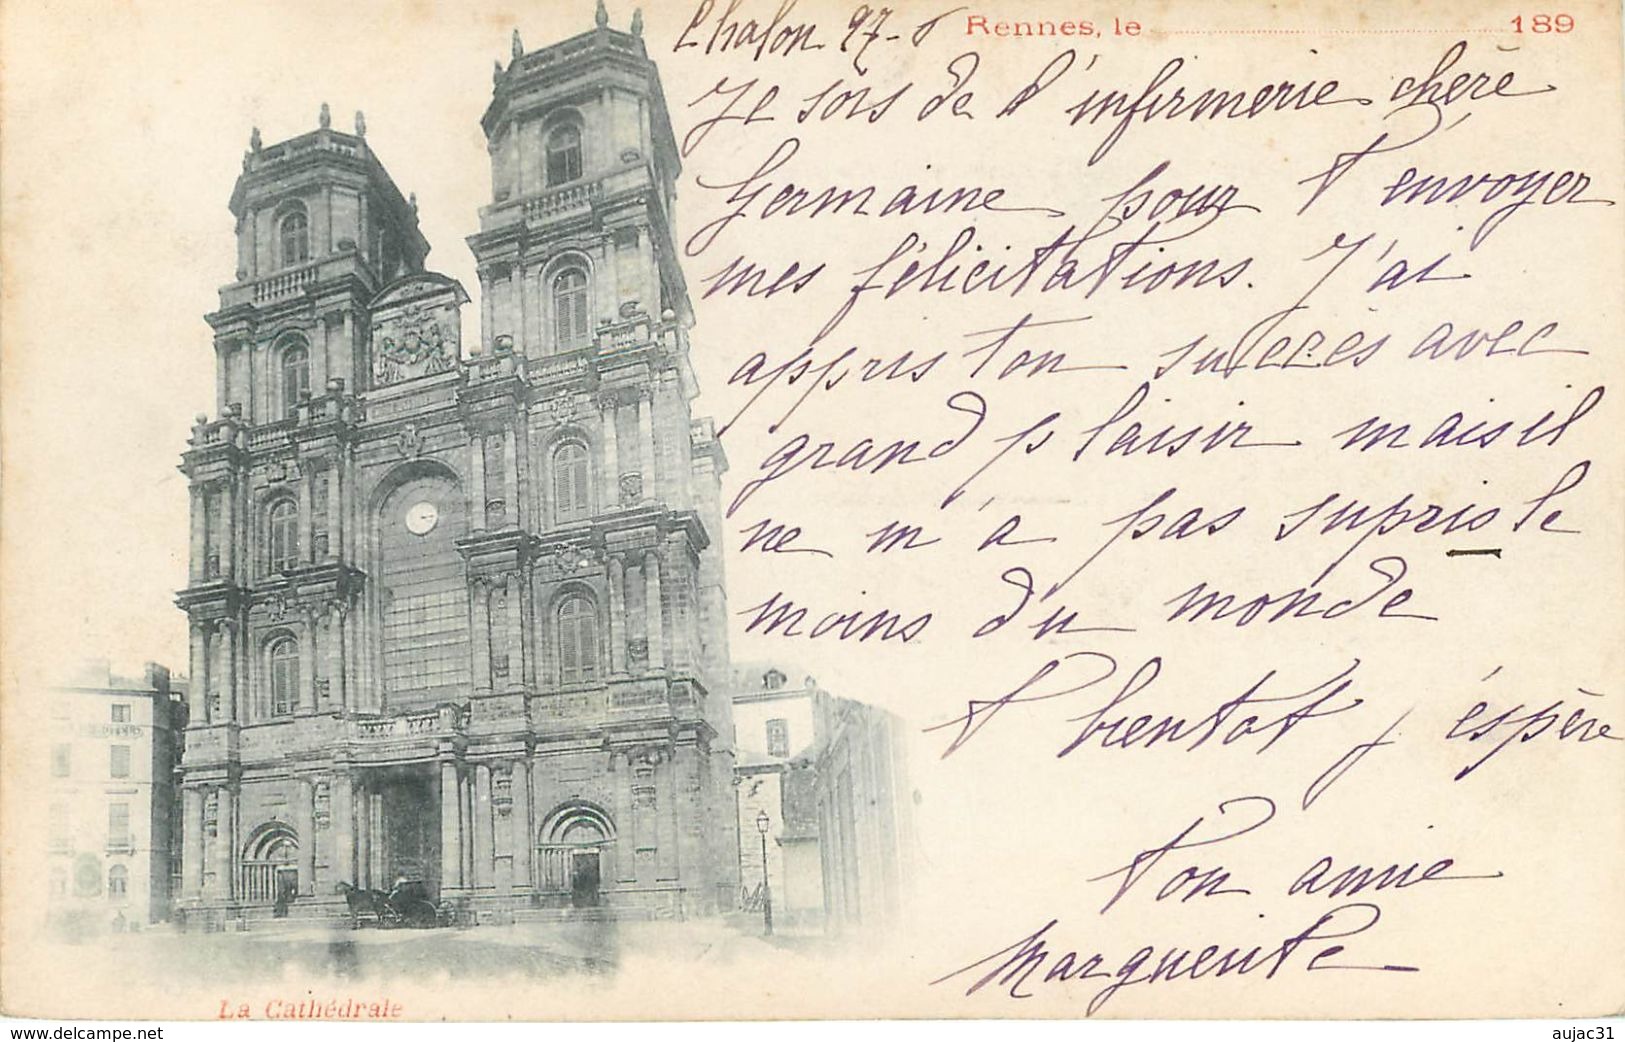 Chalon 27-8
Rennes, le 189
Je sors de l'infirmerie chère
Germaine pour t'envoyer
mes félicitations. J'ai
appris ton succès avec
grand plaisir mais il
ne m'a pas supris le
moins du monde
A bientot j'éspère
Ton amie
Marguerite
La Cathédrale
www.delcampe.net
aujac31